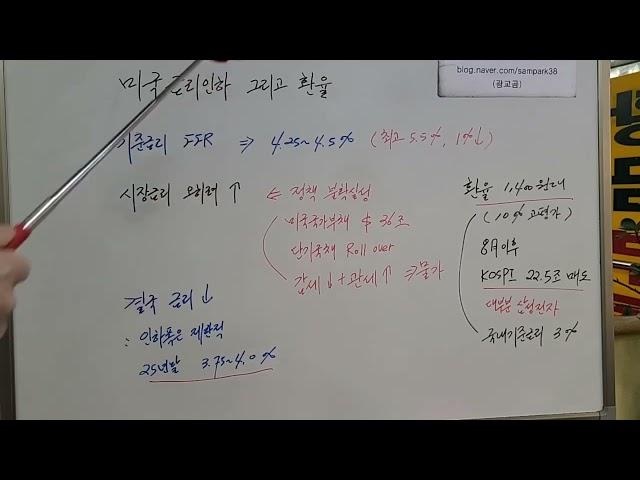 blog.naver.com/sampark38
(광교곰)
미국 금리인하 그리고 환율
기준금리 FFR ⇒ 4.25~4.5% (최고 5.5%, 1%↓)
시장금리 오히려 ↑ ⇐ 정책 불확실성
미국국가부채 $ 36조
단기국채 Roll over
감세↓ + 관세↑ ⇒ 물가
결국 금리↓
∴ 인하폭은 제한적
25년말 3.75~4.0%
환율 1,400원대
(10% 고평가)
8月이후
KOSPI 22.5조 매도
대부분 삼성전자
국내기준금리 3%